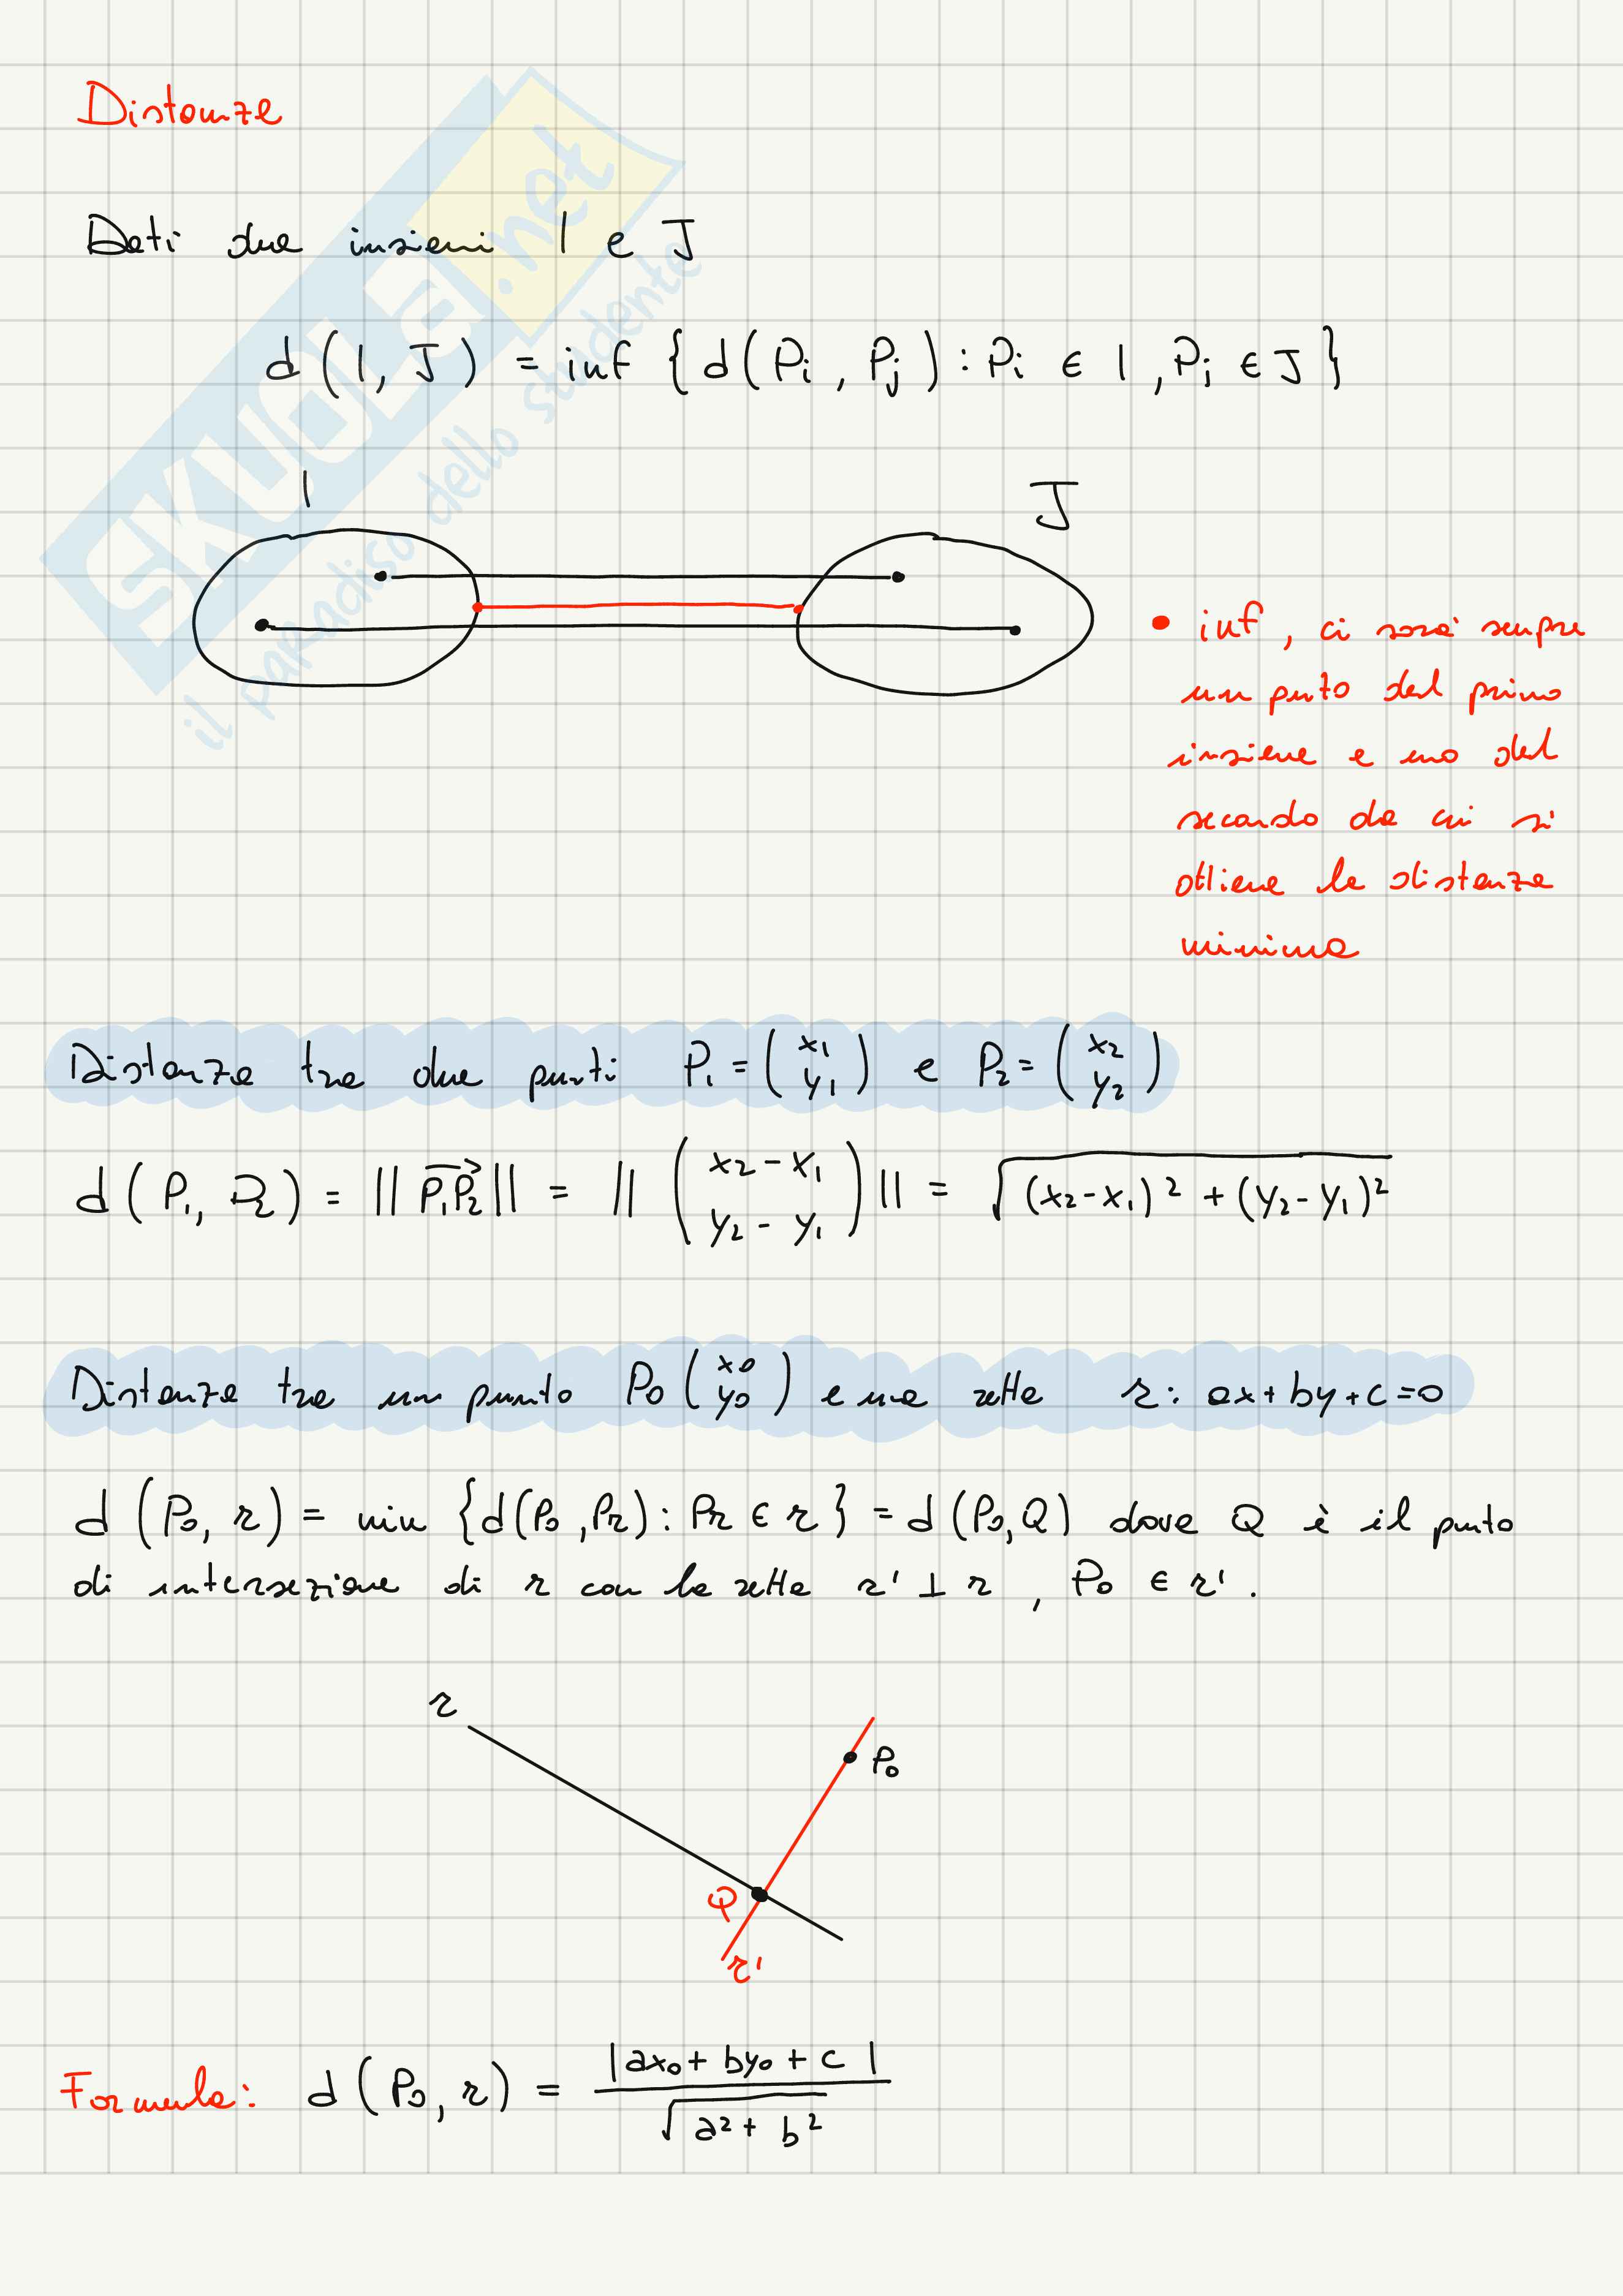 Distanze
Dati due insiemi I e J
d(I, J) = inf {d(Pi, Pj) : Pi ∈ I, Pj ∈ J}
I
J
• inf, ci sarà sempre
un punto del primo
insieme e uno del
secondo da cui si
ottiene la distanza
minima
Distanza tra due punti P₁ = (x₁ y₁) e P₂ = (x₂ y₂)
d(P₁, P₂) = ||P₁P₂|| = ||(x₂ - x₁ y₂ - y₁)|| = √((x₂ - x₁)² + (y₂ - y₁)²)
Distanza tra un punto P₀ (x₀ y₀) e una retta r: ax + by + c = 0
d(P₀, r) = min {d(P₀, Pr) : Pr ∈ r} = d(P₀, Q) dove Q è il punto
di intersezione di r con la retta r' ⊥ r, P₀ ∈ r'.
r
P₀
Q
r'
Formula: d(P₀, r) = |ax₀ + by₀ + c| / √(a² + b²)
SKUOLa.net
il paradiso dello studente